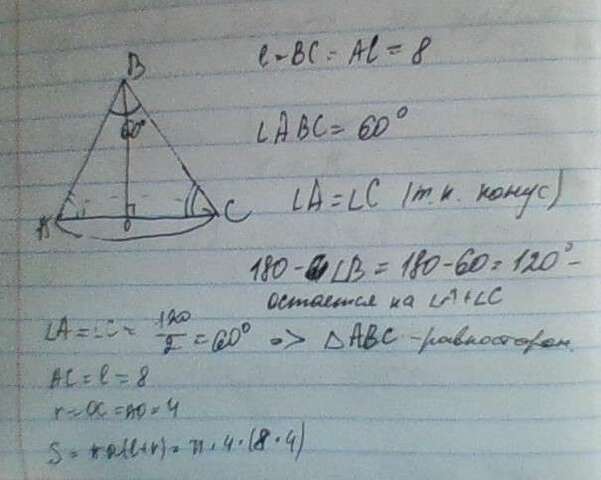 B
60°
A
C
0
l = BC = AC = 8
∠ABC = 60°
∠A = ∠C (т.к. конус)
180 - ∠B = 180 - 60 = 120° -
остается на ∠A+∠C
∠A = ∠C = 120/2 = 60° => △ABC - равносторон.
AC = l = 8
r = OC = AO = 4
S = π r(l+r) = π · 4 · (8 · 4)